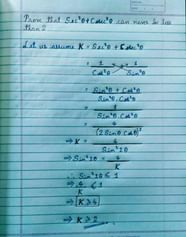 Prove that Sec²θ + Cosec²θ can never be less
than 2
Let us assume K = Sec²θ + Cosec²θ
= 1/Cos²θ + 1/Sin²θ
= Sin²θ + Cos²θ / Sin²θ.Cos²θ
= 1 / Sin²θ.Cos²θ
= 4 / (2Sinθ Cosθ)²
⇒ K = 4 / Sin²2θ
⇒ Sin²2θ = 4/K
∴ Sin²2θ ≤ 1
⇒ 4/K ≤ 1
⇒ K ≥ 4
⇒ K ≥ 2